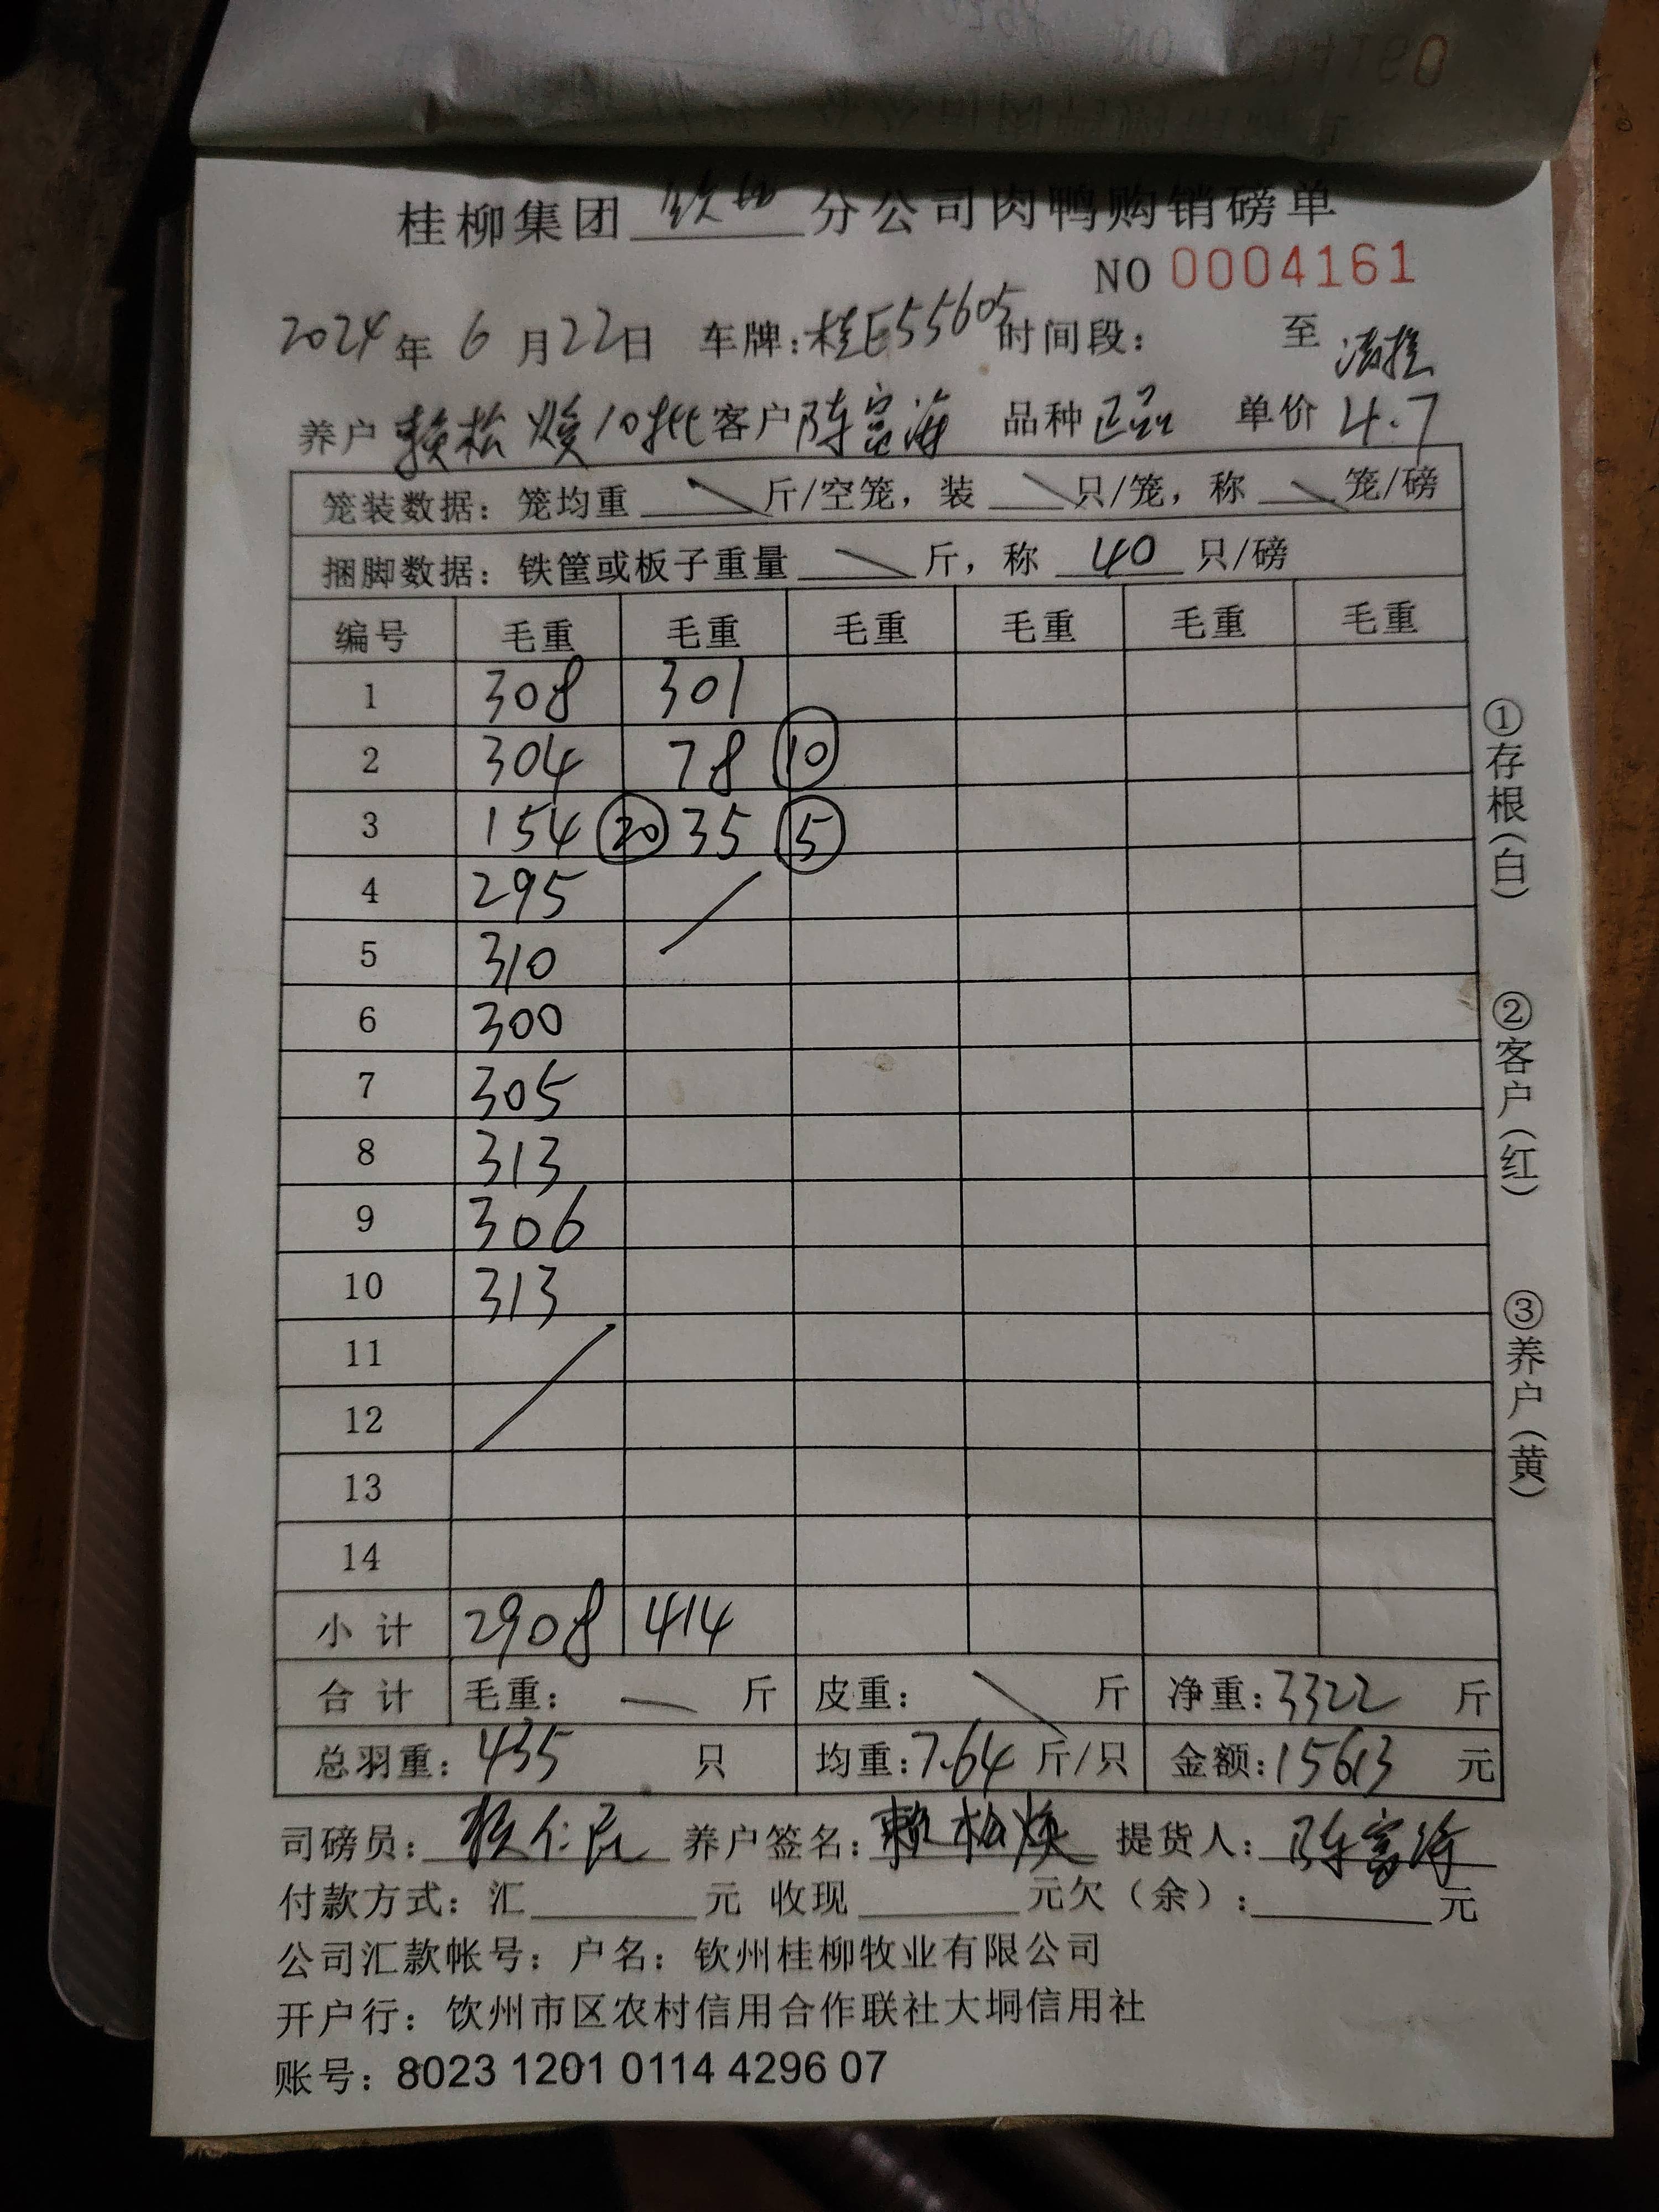 桂柳集团 钦州 分公司肉鸭购销磅单
NO 0004161
2024年 6 月22日 车牌:桂E55605 时间段: 至
养户 赖松焕10批 客户 陈富海 品种 正品 单价 4.7
笼装数据: 笼均重 斤/空笼, 装 只/笼, 称 笼/磅
捆脚数据: 铁筐或板子重量 斤, 称 40 只/磅
编号 毛重 毛重 毛重 毛重 毛重 毛重
1 308 301
2 304 78 ⑩
3 154 ⑳ 35 ⑤
4 295
5 310
6 300
7 305
8 313
9 306
10 313
11
12
13
14
小计 2908 414
合计 毛重: 斤 皮重: 斤 净重:3322 斤
总羽重: 435 只 均重:7.64 斤/只 金额:15613 元
司磅员: 养户签名: 赖松焕 提货人: 陈富海
付款方式: 汇 元 收现 元欠(余): 元
公司汇款帐号: 户名: 钦州桂柳牧业有限公司
开户行: 钦州市区农村信用合作联社大垌信用社
账号: 8023 1201 0114 4296 07
①存根(白)
②客户(红)
③养户(黄)